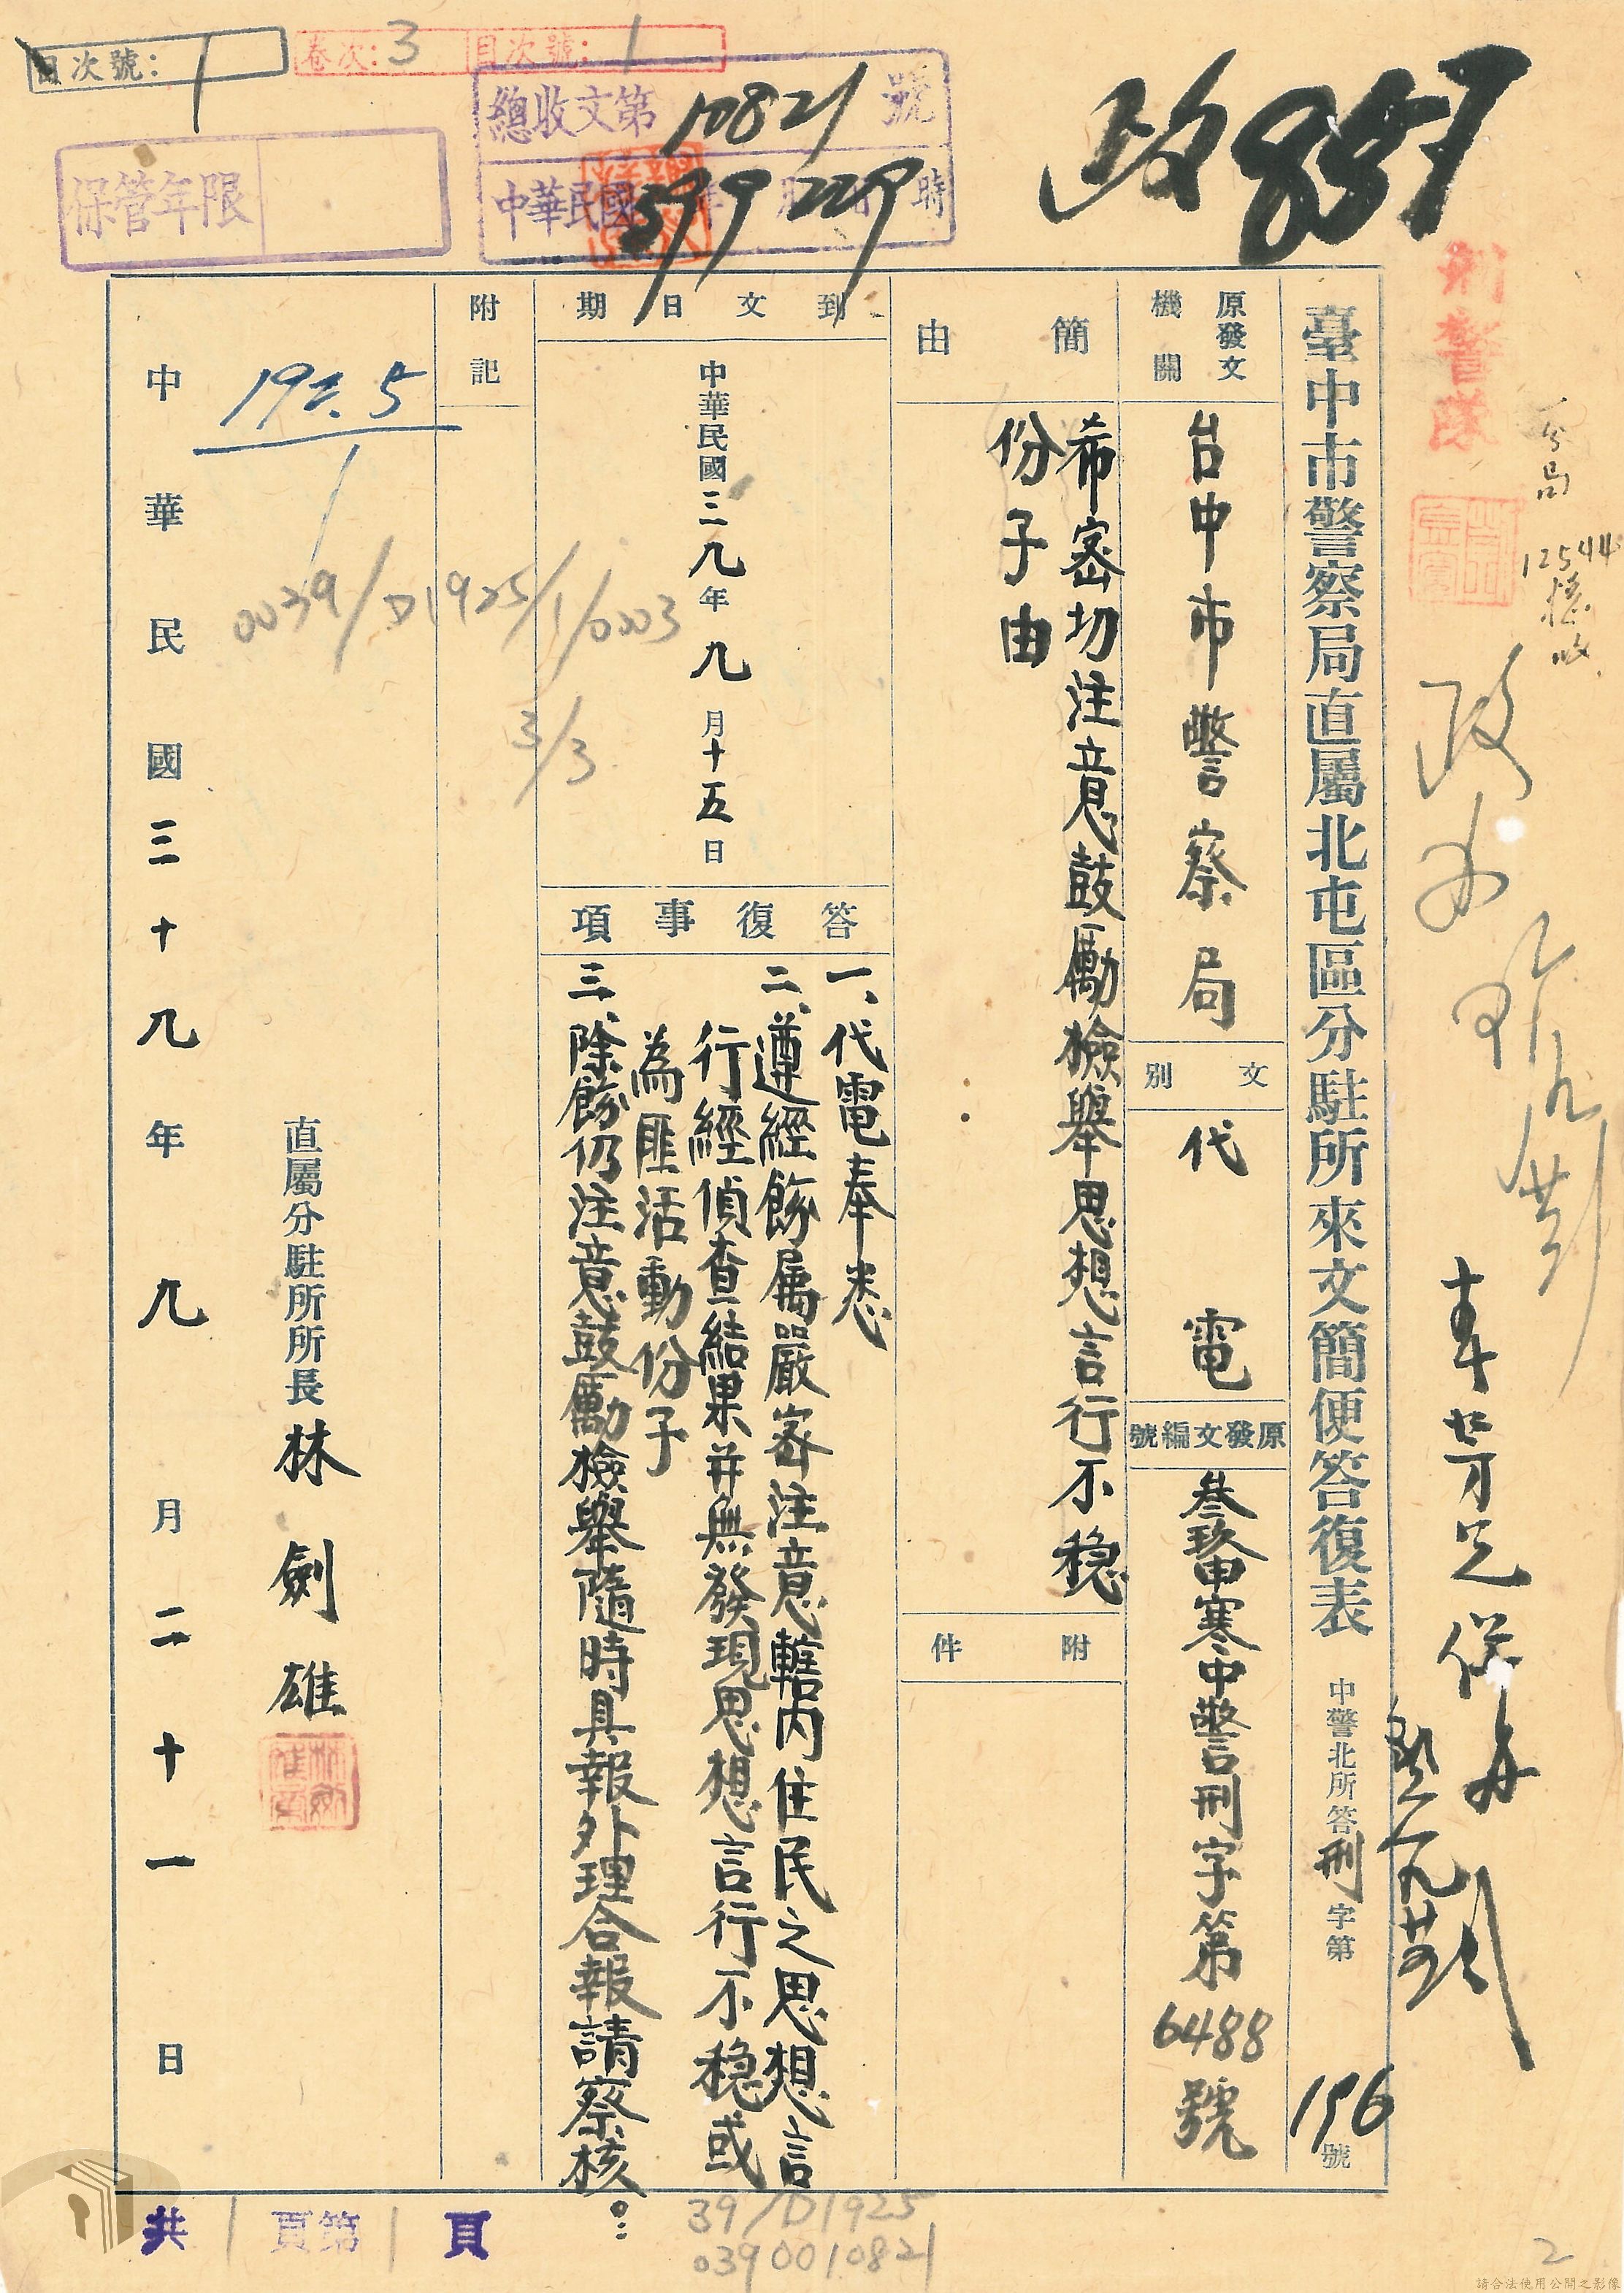 目次號：1
卷次：3 目次號：1
總收文第10821號
中華民國39年9月22日9時
保管年限
政857
刑警隊
臺中市警察局直屬北屯區分駐所來文簡便答復表 中警北所答刑字第196號
原發文機關
台中市警察局
文別
代電
原發文編號
叁玖申寒中警刑字第6488號
簡由
希密切注意鼓勵檢舉思想言行不稳
份子由
附件
到文日期
中華民國三九年九月十五日
答復事項
一、代電奉悉
二、遵經飭屬嚴密注意轄內住民之思想言
行經偵查結果并無發現思想言行不稳或
為匪活動份子
三、除飭仍注意鼓勵檢舉隨時具報外理合報請察核。
附記
192.5
0039/D1925/1/0003
3/3
直屬分駐所所長林劍雄
中華民國三十九年九月二十一日
共1頁第1頁
39/D1925
0390010821
2
請合法使用公開之影像